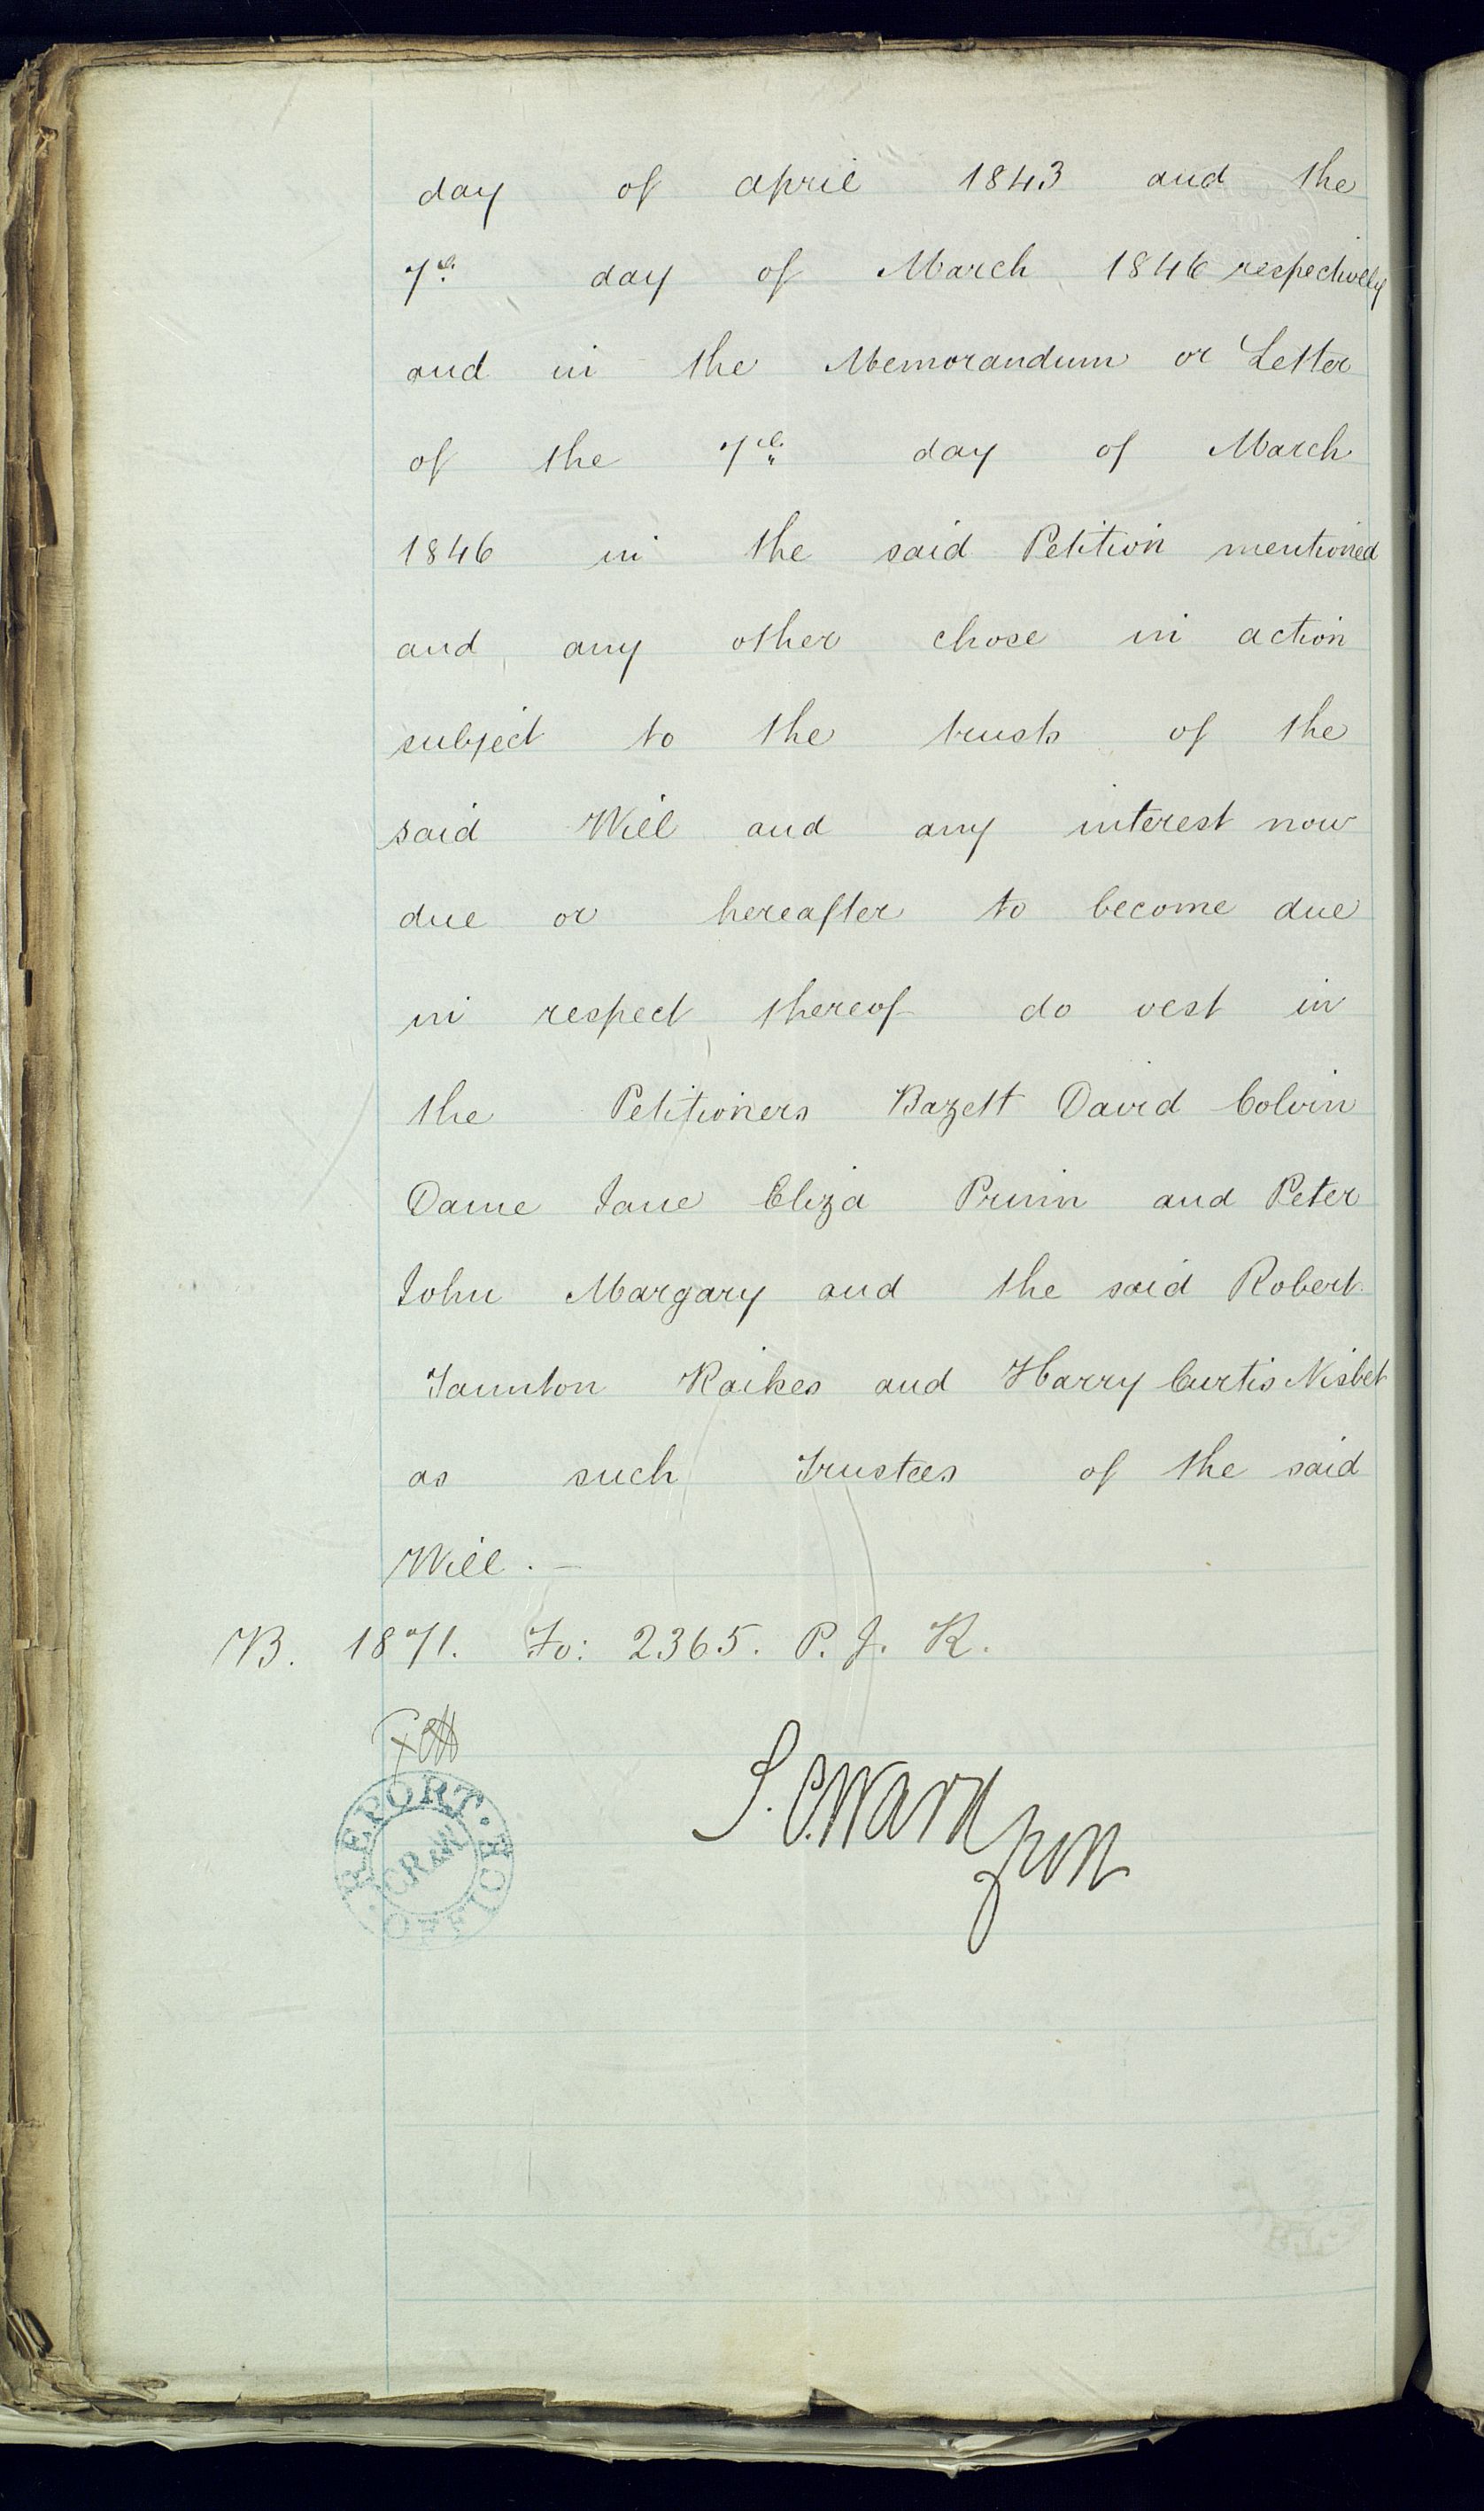 day of April 1843 and the
7th day of March 1846 respectively
and in the Memorandum or Letter
of the 7th day of March
1846 in the said Petition mentioned
and any other chose in action
subject to the trusts of the
said Will and any interest now
due or hereafter to become due
in respect thereof do vest in
the Petitioners Bazett David Colvin
Dame Jane Eliza Prinn and Peter
John Margary and the said Robert
Taunton Raikes and Harry Curtis Nisbet
as such Trustees of the said
Will . —
B. 1871. Fo: 2365. P. J. K.
REPORT OFFICE